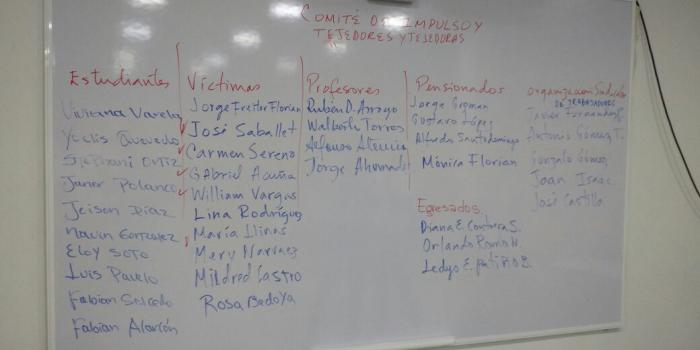 COMITÉ DE IMPULSO Y
TEJEDORES Y TEJEDORAS
Estudiantes
Viviana Varela
Yoclis Quevedo
Stephani Ortiz
Janer Polanco
Jeison Diaz
Gonzalez
Eloy Soto
Luis
Fabian Salcedo
Fabian Alarcón
Víctimas
Jorge Freiter Florian
José Saballet
Carmen Sereno
Gabriel Acuña
William Vargas
Lina Rodríguez
María Llinas
Mery Narvaez
Mildred Castro
Rosa Bedoya
Profesores
Rubén D. Arroyo
Walberto Torres
Alfonso
Jorge Ahumada
Pensionados
Jorge Guzman
Gustavo López
Alfredo Santodomingo
Mónica Florian
Egresados
Diana E. Contrera S.
Orlando
Ledys E. Patiño B.
Organización Sindical
DE TRABAJADORES
Javier Fernandez
Antonio Gómez T.
Gonzalo Gómez
Joan Isaac
José Castilla